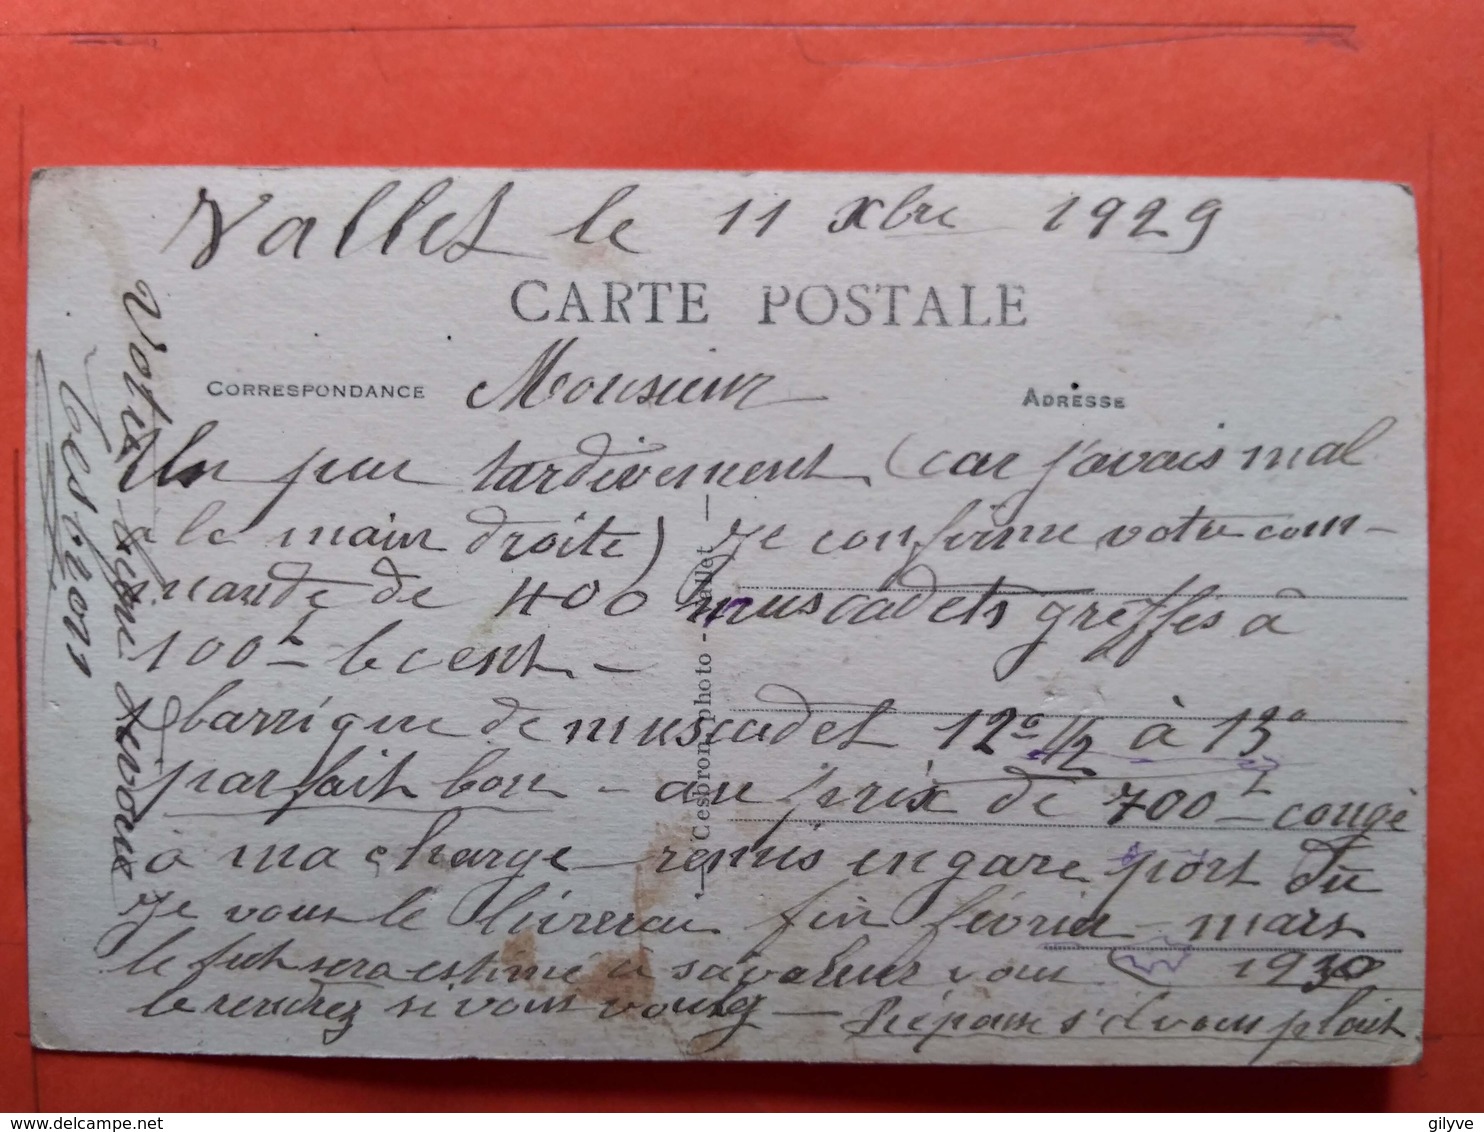 Vallet le 11 xbre 1929
CARTE POSTALE
CORRESPONDANCE
ADRESSE
Monsieur
Un peu tardivement (car j'avais mal
à la main droite) je confirme votre com-
mande de 400 muscadets greffés à
100f le cent -
barrique de muscadet 12° 1/2 à 13°
parfait bon - au prix de 700f congé
à ma charge remis en gare port dû
Je vous le livrerai fin février - mars
1930
le fut sera estimé à sa valeur vous
le rendrez si vous voulez - Réponse s'il vous plait
Votre bien dévoué
Cesbron
Cesbron photo - Vallet
gilyve